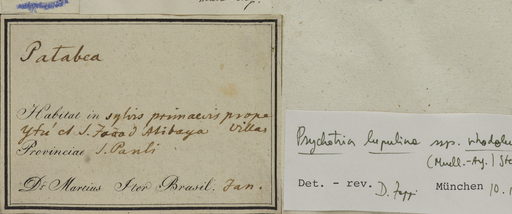 Patabea
Habitat in sylvis primaevis prope
Ytú et S. João d Atibaya Villas
Provinciae S. Pauli
Dr Martius Iter Brasil. Jan.
Psychotria lupulina ssp.
(Muell.-Arg.)
Det. - rev. D. Zappi München 10.